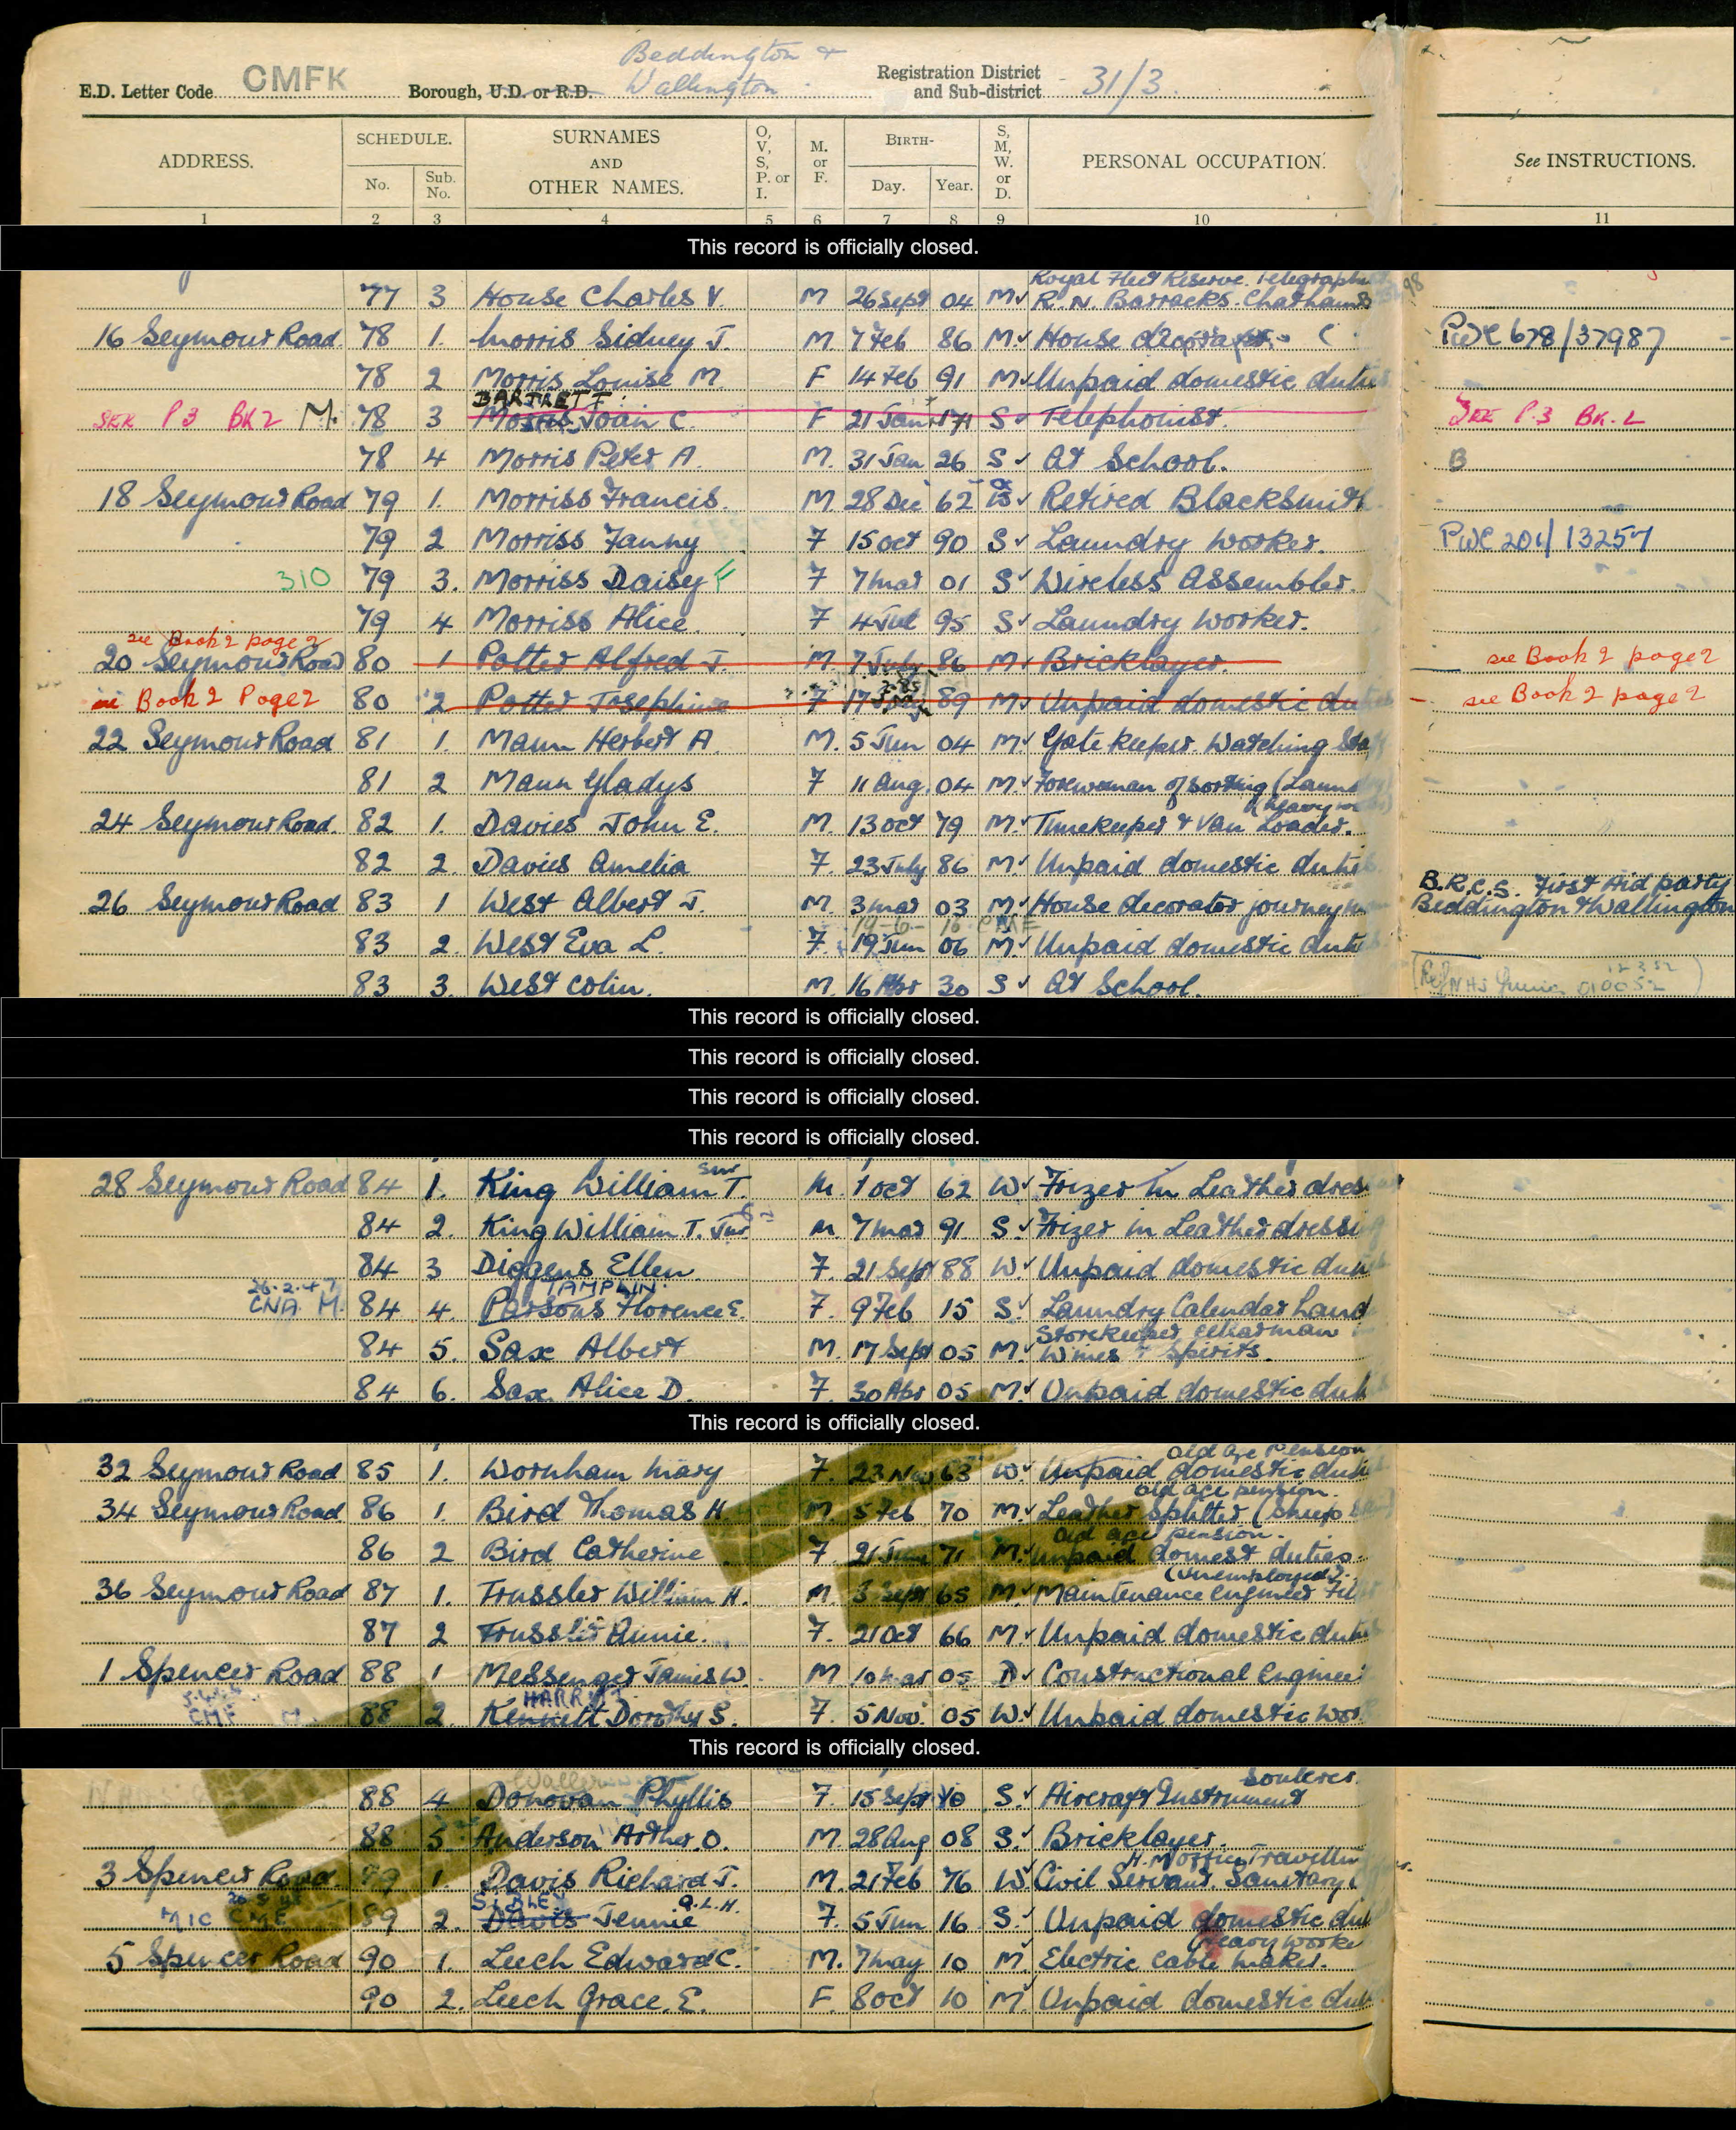 Beddington &
E.D. Letter Code CMFK Borough, U.D. or R.D. Wallington Registration District and Sub-district 31/3
ADDRESS. SCHEDULE. No. Sub. No. SURNAMES AND OTHER NAMES. O, V, S, P. or I. M. or F. BIRTH- Day. Year. S, M, W. or D. PERSONAL OCCUPATION. See INSTRUCTIONS.
1 2 3 4 5 6 7 8 9 10 11
This record is officially closed.
Royal Fleet Reserve. Telegraphist
77 3 House Charles V. M 26 Sept 04 M R. N. Barracks. Chatham
16 Seymour Road 78 1. Morris Sidney J. M. 7 Feb 86 M. House decorator PWC 678/37987
78 2 Morris Louise M F 14 Feb 91 M Unpaid domestic duties
BARTRETT
SEE P3 BK2 M. 78 3 Morris Joan C. F 21 Jan S Telephonist. SEE P.3 BK. 2
78 4 Morris Peter A. M. 31 Jan 26 S At School. B
18 Seymour Road 79 1. Morriss Francis. M. 28 Dec 62 Retired Blacksmith
79 2 Morriss Fanny F 15 Oct 90 S Laundry Worker. PWC 201/13257
310 79 3. Morriss Daisy F F 7 Mar 01 S Wireless Assembler.
79 4 Morriss Alice F 4 Jul 95 S Laundry Worker.
see Book 2 page 2
20 Seymour Road 80 1 Potter Alfred J. M. 7 July 86 M Bricklayer see Book 2 page 2
see Book 2 Page 2 80 2 Potter Josephine F 17 89 M Unpaid domestic duties see Book 2 page 2
22 Seymour Road 81 1. Mann Herbert A M. 5 Jun 04 M Gate Keeper. Watching Staff
81 2 Mann Gladys F 11 Aug. 04 M Forewoman of Sorting (Laundry)
(heavy work)
24 Seymour Road. 82 1. Davies John E. M. 13 Oct 79 M. Timekeeper & Van Loader.
82 2. Davies Amelia F. 23 July 86 M Unpaid domestic duties
26 Seymour Road 83 1 West Albert J. M. 3 Mar 03 M House decorator journeyman B.R.C.S. First Aid party Beddington & Wallington
19-6- CMF
83 2. West Eva L. F. 19 Jun 06 M. Unpaid domestic duties
83 3. West Colin. M. 16 Apr 30 S At School.
This record is officially closed.
This record is officially closed.
This record is officially closed.
This record is officially closed.
28 Seymour Road 84 1. King William T. Snr M. 1 Oct 62 W Frizer in Leather dressing
84 2. King William T. Jnr M 7 Mar 91 S. Frizer in Leather dressing
84 3 Diggens Ellen. F. 21 Sept 88 W. Unpaid domestic duties
26.2.47 TAMPLIN.
CNA M. 84 4. Parsons Florence E. F. 9 Feb 15 S. Laundry Calendar hand
Storekeeper Cellarman
84 5. Sax Albert M. 17 Sept 05 M. Wines & Spirits.
84 6. Sax Alice D. F. 30 Apr 05 M. Unpaid domestic duties
This record is officially closed.
Old Age Pension
32 Seymour Road 85 1. Wornham Mary F. 23 Nov 63 W. Unpaid domestic duties
old age pension.
34 Seymour Road 86 1. Bird Thomas H. M. 5 Feb 70 M. Leather Splitter (Sheep
old age pension.
86 2 Bird Catherine F. 21 Jun 71 M. Unpaid domest duties.
(Unemployed).
36 Seymour Road 87 1. Trussler William H. M 3 Sept 65 M. Maintenance engineer
87 2 Trussler Annie. F. 21 Oct 66 M. Unpaid domestic duties
1 Spencer Road 88 1 Messenger James W. M 10 Mar 05 D. Constructional Engineer
CMF M HARRIST
88 2. Kennett Dorothy S. F. 5 Nov. 05 W. Unpaid domestic work
This record is officially closed.
Solderer.
88 4 Donovan Phyllis F. 15 Sept 10 S. Aircraft Instrument
88 5 Anderson Arther. O. M. 28 Aug 08 S. Bricklayer.
H.M Office Travelling
3 Spencer Road. 89 1. Davis Richard J. M. 21 Feb 76 W Civil Servant. Sanitary
SIBLEY Q.L.H.
MIC CMF 89 2. Davis Jennie F. 5 Jun 16 S. Unpaid domestic duties
(Heavy Worker
5 Spencer Road 90 1. Leech Edward C. M. 7 May 10 M Electric Cable maker.
90 2. Leech Grace. E. F. 8 Oct 10 M Unpaid domestic duties